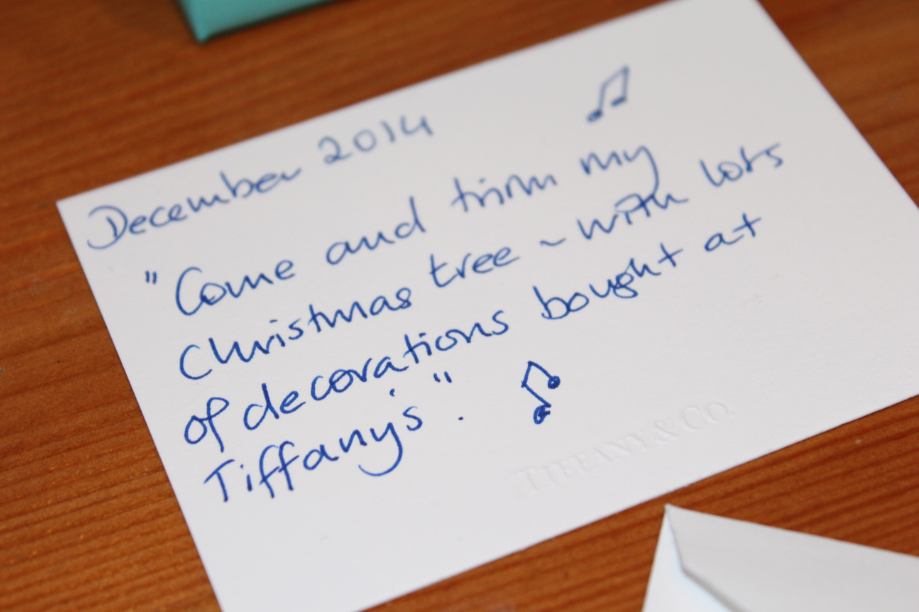 December 2014
"Come and trim my
Christmas tree ~ with lots
of decorations bought at
Tiffany's".
TIFFANY & CO.